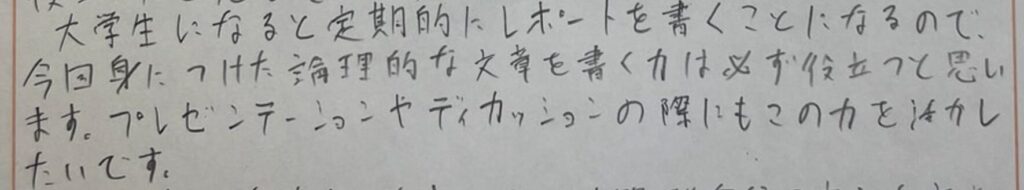 大学生になると定期的にレポートを書くことになるので、
今回身につけた論理的な文章を書く力は必ず役立つと思い
ます。プレゼンテーションやディカッションの際にもこの力を活かし
たいです。